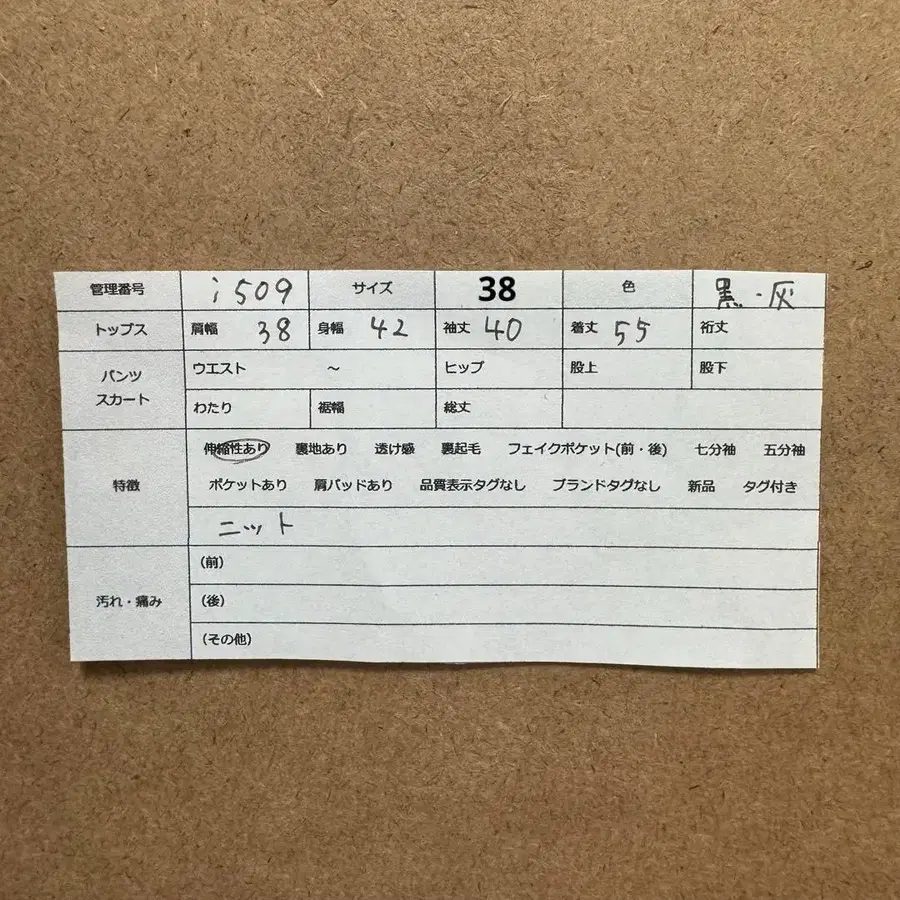 管理番号 i509 サイズ 38 色 黒・灰
トップス 肩幅 38 身幅 42 袖丈 40 着丈 55 裄丈
パンツ スカート ウエスト ～ ヒップ 股上 股下
わたり 裾幅 総丈
特徴 伸縮性あり 裏地あり 透け感 裏起毛 フェイクポケット(前・後) 七分袖 五分袖
ポケットあり 肩パッドあり 品質表示タグなし ブランドタグなし 新品 タグ付き
ニット
汚れ・痛み (前)
(後)
(その他)